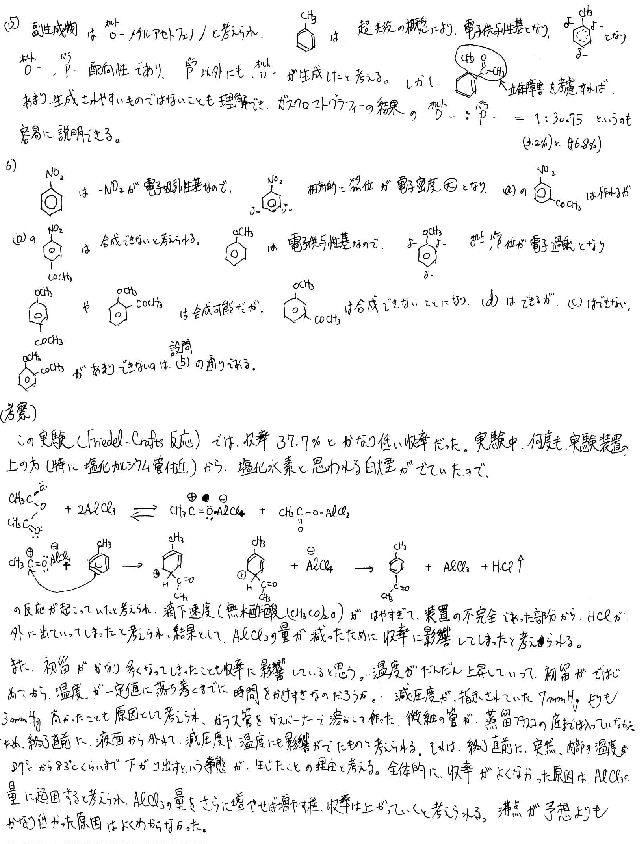 (5) 副生成物 は o-メチルアセトフェノン と考えられ、 CH₃ は 超共役の概念により、電子供与性基となり、 CH₃ δ- δ- δ- となり
o-、p- 配向性であり、p-以外にも、o- が生成したと考える。しかし CH₃ O C-CH₃ 立体障害を考慮すれば、
あまり生成されやすいものではないことも理解でき、ガスクロマトグラフィーの結果の o- : p- = 1:30.25 というのも
容易に説明できる。 (3.2%) : (96.8%)
6)
NO₂ は -NO₂が電子吸引性基なので、 NO₂ 相対的に m-位が電子密度 となり (a)の NO₂ COCH₃ は作れるが
(b)の NO₂ COCH₃ は合成できないと考えられる。 OCH₃ は 電子供与性基なので、 OCH₃ δ- δ- δ- o-, p-位が電子過剰となり
OCH₃ COCH₃ や OCH₃ COCH₃ は合成可能だが、 OCH₃ COCH₃ は合成できないことになり、(d)はできるが、(c)はできない。
OCH₃ COCH₃ があまりできないのは、設問(5)の通りである。
(考察)
この実験(Friedel-Crafts反応)では、収率37.7%とかなり低い収率だった。実験中、何度も実験装置の
上の方(特に塩化カルシウム管付近)から、塩化水素と思われる白煙がでていたので、
CH₃C O O CH₃C O + 2AlCl₃ ⇌ CH₃C=O AlCl₃ + CH₃C-O-AlCl₂ O
CH₃C=O AlCl₃ + CH₃ → CH₃ H C=O CH₃ CH₃ H C=O CH₃ + AlCl₄ → CH₃ C=O CH₃ + AlCl₃ + HCl↑
の反応が起こっていたと考えられ、滴下速度(無水酢酸(CH₃CO)₂O)がはやすぎて、装置の不完全であった部分から、HClが
外に出ていってしまったと考えられ、結果として、AlCl₃の量が減ったために収率に影響してしまったと考えられる。
また、初留がかなり多くなってしまったことも収率に影響していると思う。温度がだんだん上昇していって、初留がではじ
めてから、温度が一定値に落ち着くまでに時間をかけすぎたのだろうか。減圧度が、指定されていた7mmHgよりも
3mmHg高かったことも原因として考えられ、ガラス管をガスバーナーで溶かして作った微細の管が、蒸留フラスコの底まで入っていなかった
ため、終了直前に、液面から外れて、減圧度や温度にも影響がでたものと考えられる。それは、終了直前に、突然、内部の温度が
くらいまで下がり出すという事態が、生じたことの理由と考える。全体的に、収率がよくなかった原因はAlCl₃の
量に起因すると考えられ、AlCl₃の量をさらに増やせば 収率は上がっていくと考えられる。沸点が予想よりも
かなり低かった原因はよくわからなかった。